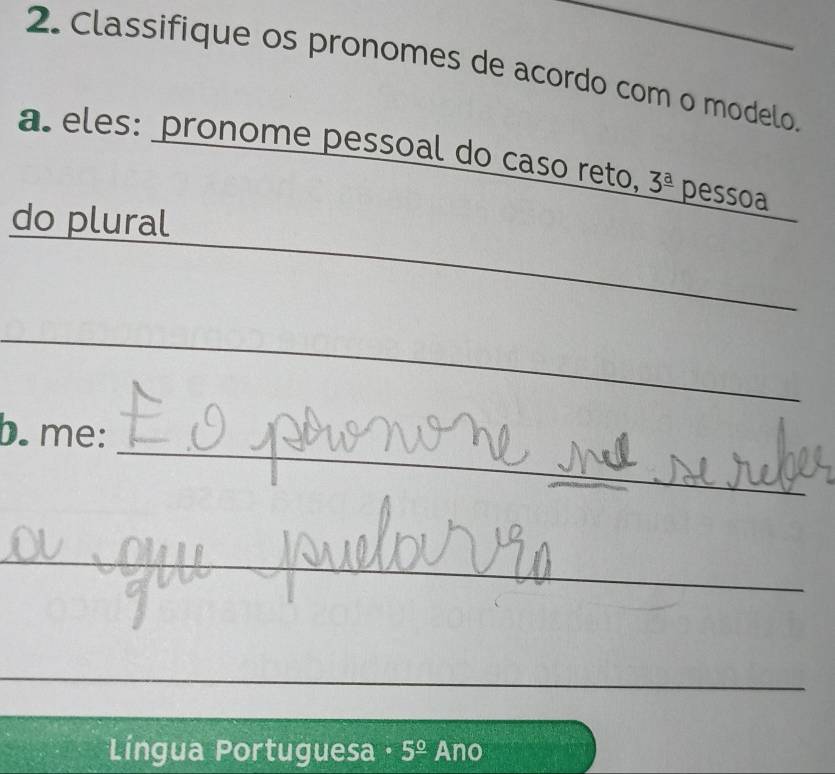 2. Classifique os pronomes de acordo com o modelo.
a. eles: pronome pessoal do caso reto, 3ª pessoa
do plural
b. me: E o
a
Língua Portuguesa · 5º Ano